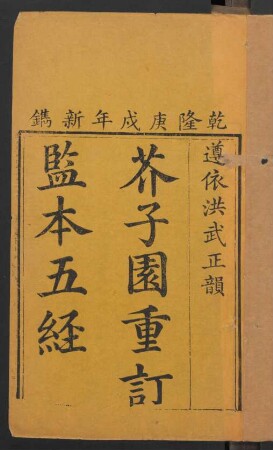 乾隆庚戌年新鐫
遵依洪武正韻
芥子園重訂
監本五経